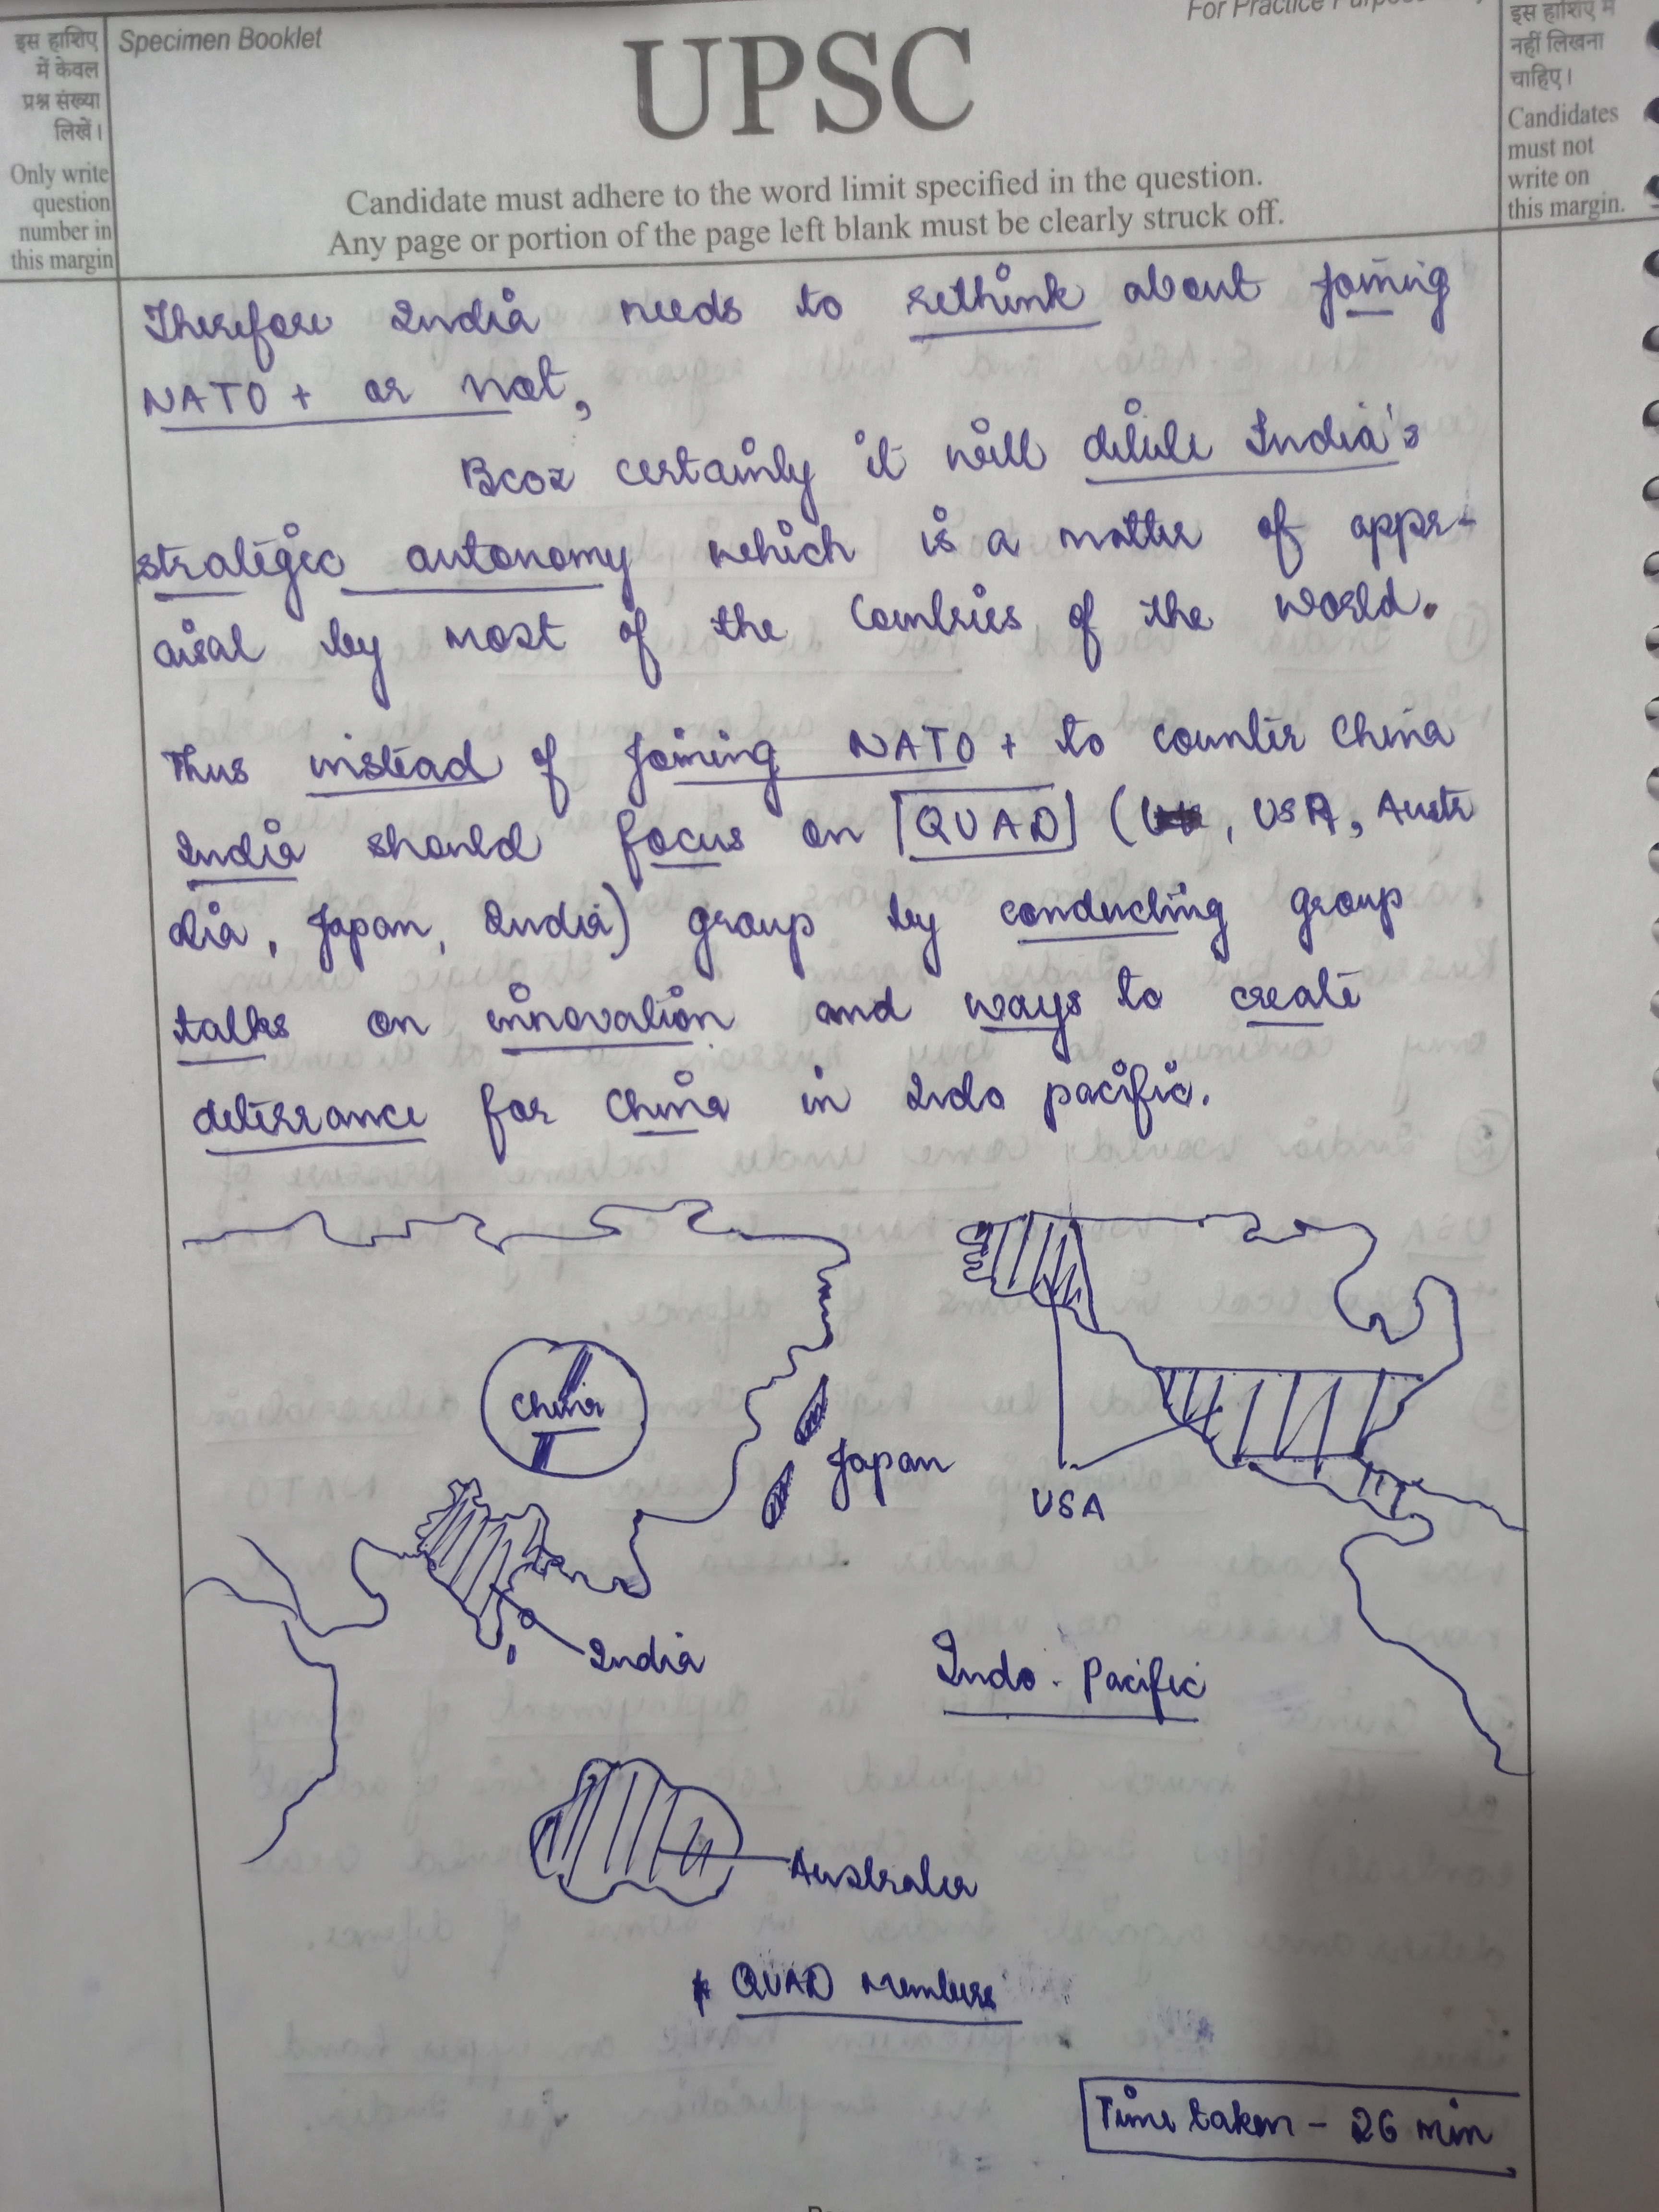 इस हाशिए
में केवल
प्रश्न संख्या
लिखें।
Only write
question
number in
this margin
Specimen Booklet
For Practice
UPSC
Candidate must adhere to the word limit specified in the question.
Any page or portion of the page left blank must be clearly struck off.
इस हाशिए में
नहीं लिखना
चाहिए।
Candidates
must not
write on
this margin.
Therefore India needs to rethink about joining
NATO + or not,
Bcoz certainly it will dilute India's
strategic autonomy which is a matter of appr-
aisal by most of the Countries of the world.
Thus instead of joining NATO + to counter China
India should focus on QUAD ( , USA, Austr
alia, Japan, India) group by conducting group
talks on innovation and ways to create
deterrance for China in Indo pacific.
China
Japan
USA
India
Indo - Pacific
Australia
* QUAD Members
Time taken - 26 min